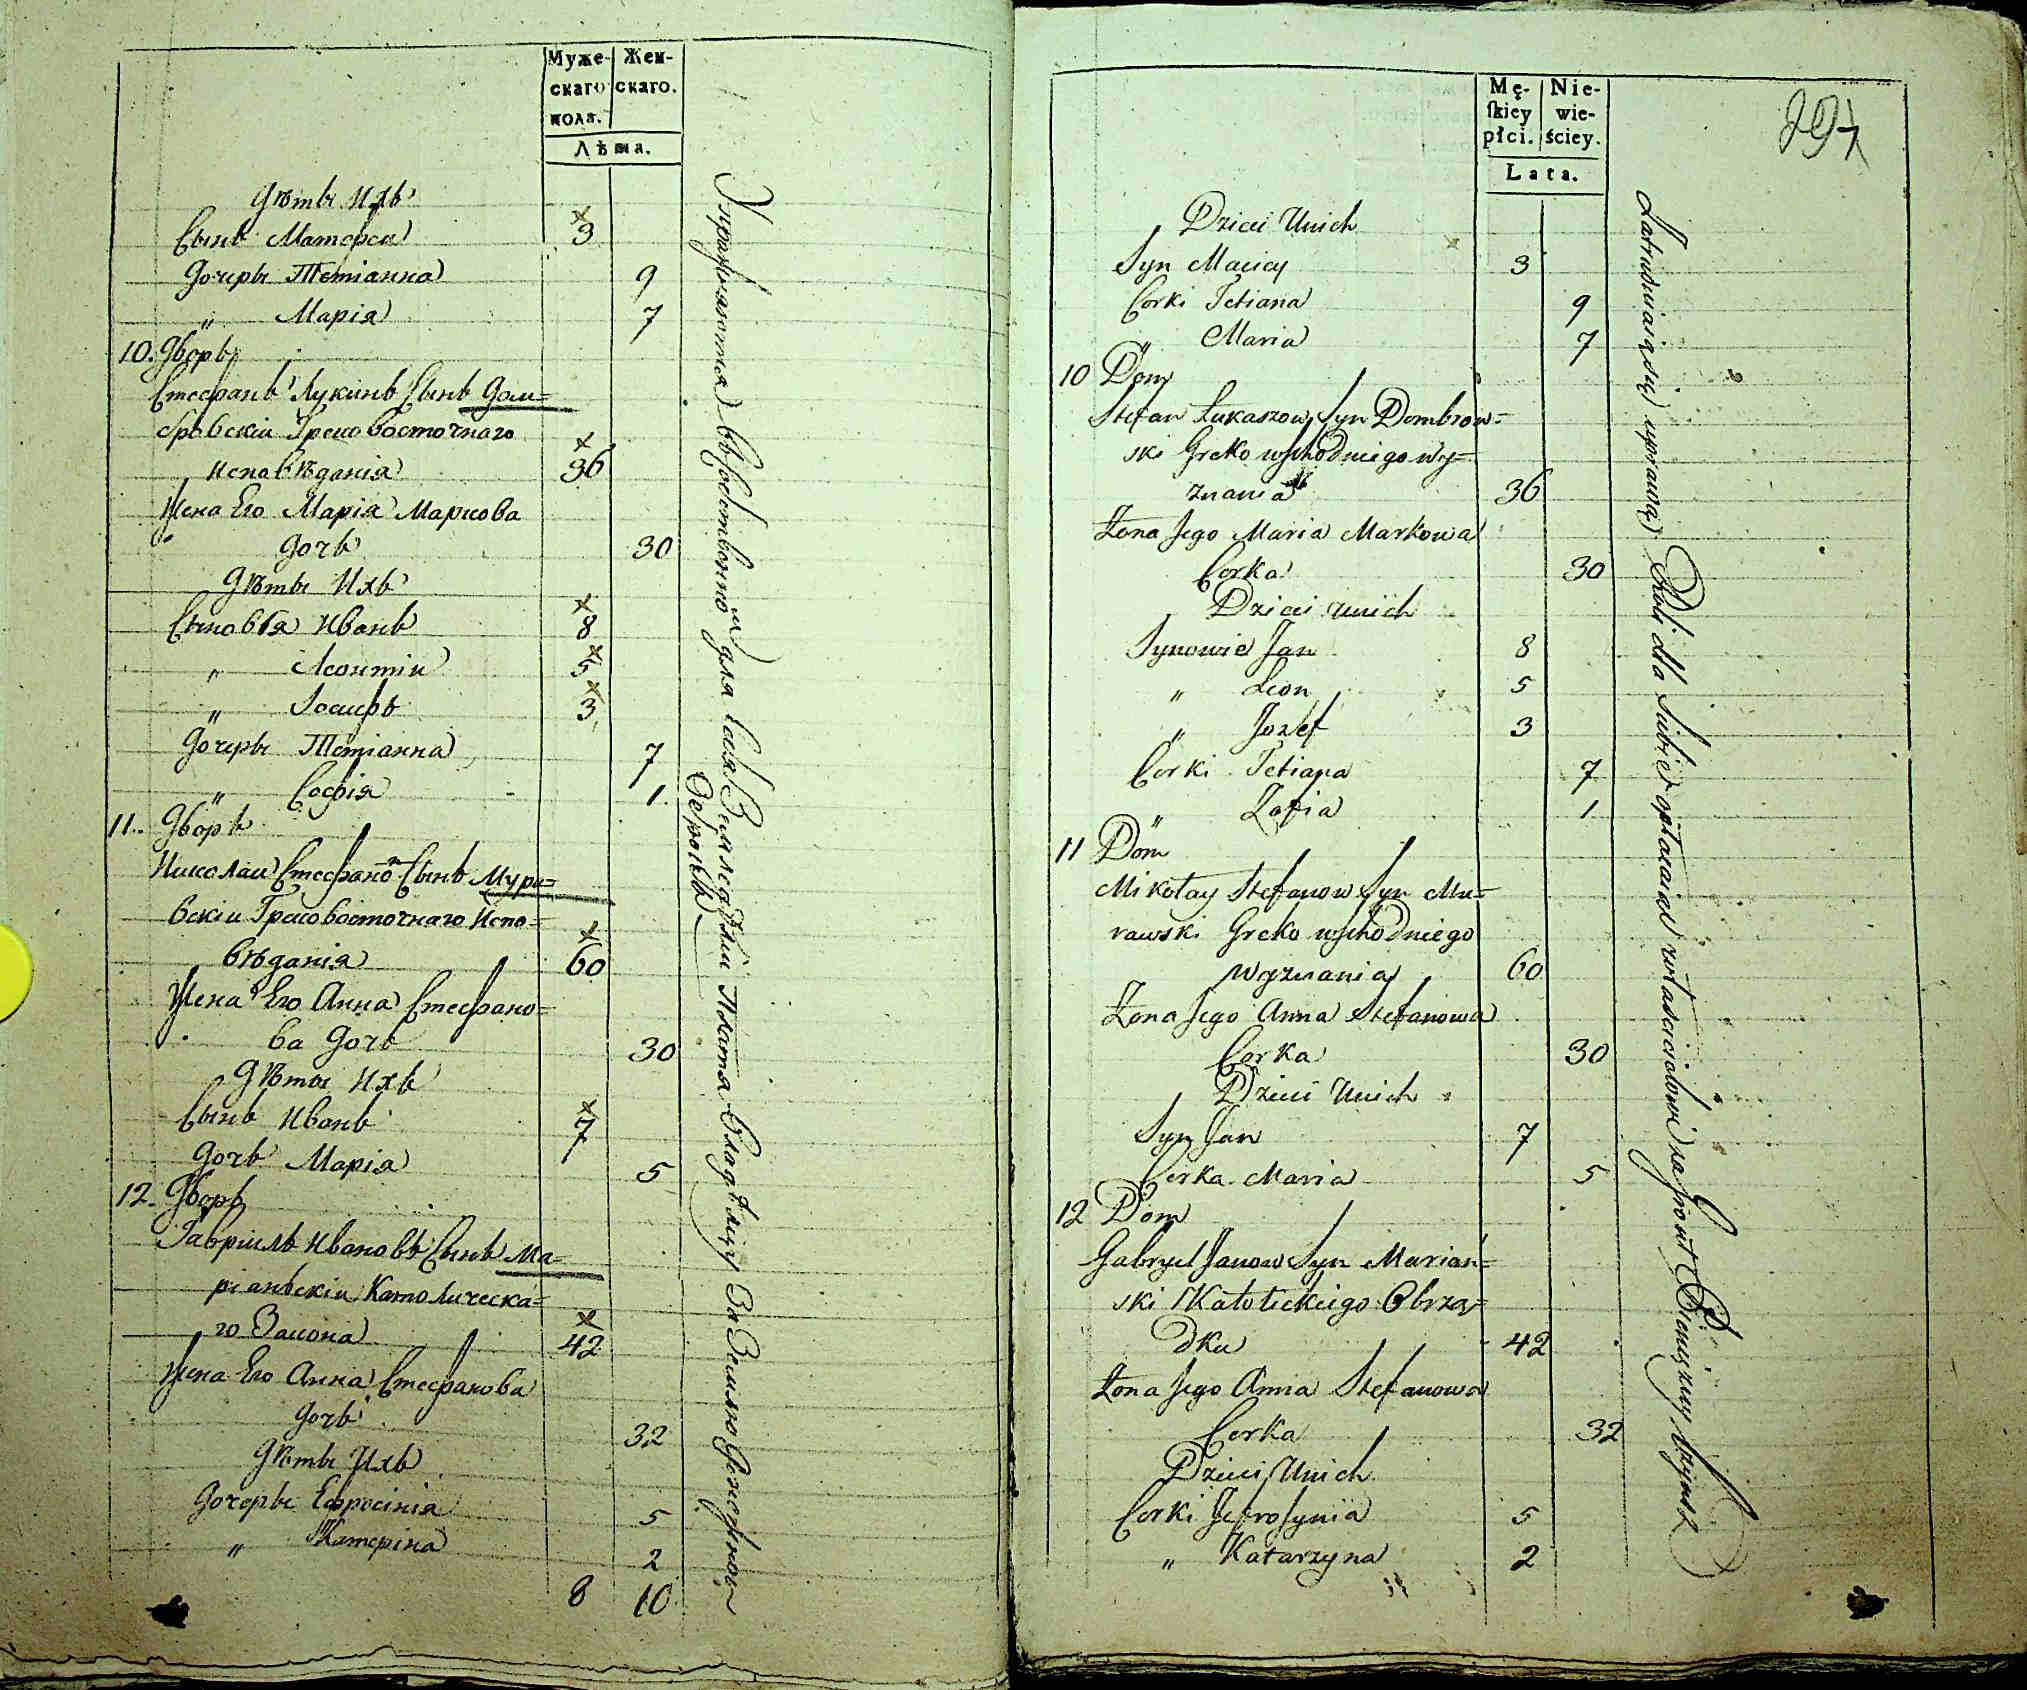 Муже-
скаго
пола.
Жен-
скаго.
Лѣта.
Дѣти Ихъ
Сынъ Матѳеи 3
Дочери Тетіанна 9
„ Марія 7
10. Дворъ
Стефанъ Лукинъ Сынъ Дом=
бровскіи Греко восточнаго
исповѣданія 36
Жена Его Марія Маркова
дочь 30
Дѣти Ихъ
Сыновья Иванъ 8
„ Леонтіи 5
„ Іосифъ 3
Дочери Тетіанна 7
„ Софія 1.
11. Дворъ
Николаи Стефановъ Сынъ Мура=
вскіи Греко восточнаго Испо=
вѣданія 60
Жена Его Анна Стефано=
ва дочь 30
Дѣти Ихъ
Сынъ Иванъ 7
Дочь Марія 5
12. Дворъ
Гавріилъ Ивановъ Сынъ Ма=
ріанскіи Католическа=
го Закона 42
Жена Его Анна Стефанова
дочь 32
Дѣти Ихъ
Дочери Ефросінія 5
„ Катеріна 2
8 10
Упражняются въ для себя Земледѣліи Платя Владѣлцу За Землю денежной
Оброкъ
Mę-
skiey
płci.
Nie-
wie-
ściey.
Lata.
Dzieci Unich
Syn Maciey 3
Corki Tetiana 9
„ Maria 7
10 Dom
Stefan Łukaszow Syn Dombrow=
ski Greko wschodniego wy=
znania 36
Żona Jego Maria Markowa
Corka 30
Dzieci unich
Synowie Jan 8
„ Leon 5
„ Jozef 3
Corki Tetiana 7
„ Zofia 1
11 Dom
Mikołay Stefanow Syn Mu=
rawski Greko wschodniego
wyznania 60
Żona Jego Anna Stefanowa
Corka 30
Dzieci Unich
Syn Jan 7
Corka Maria 5
12 Dom
Gabryel Janow Syn Marian=
ski Katolickiego Obrzą=
dku 42
Żona Jego Anna Stefanowa
Corka 32
Dzieci Unich
Corki Jefrosynia 5
„ Katarzyna 2
Zatrudniaią się uprawą Roli dla Siebie opłacaiąc właścicielowi za Grunt Pieniężny Czynsz